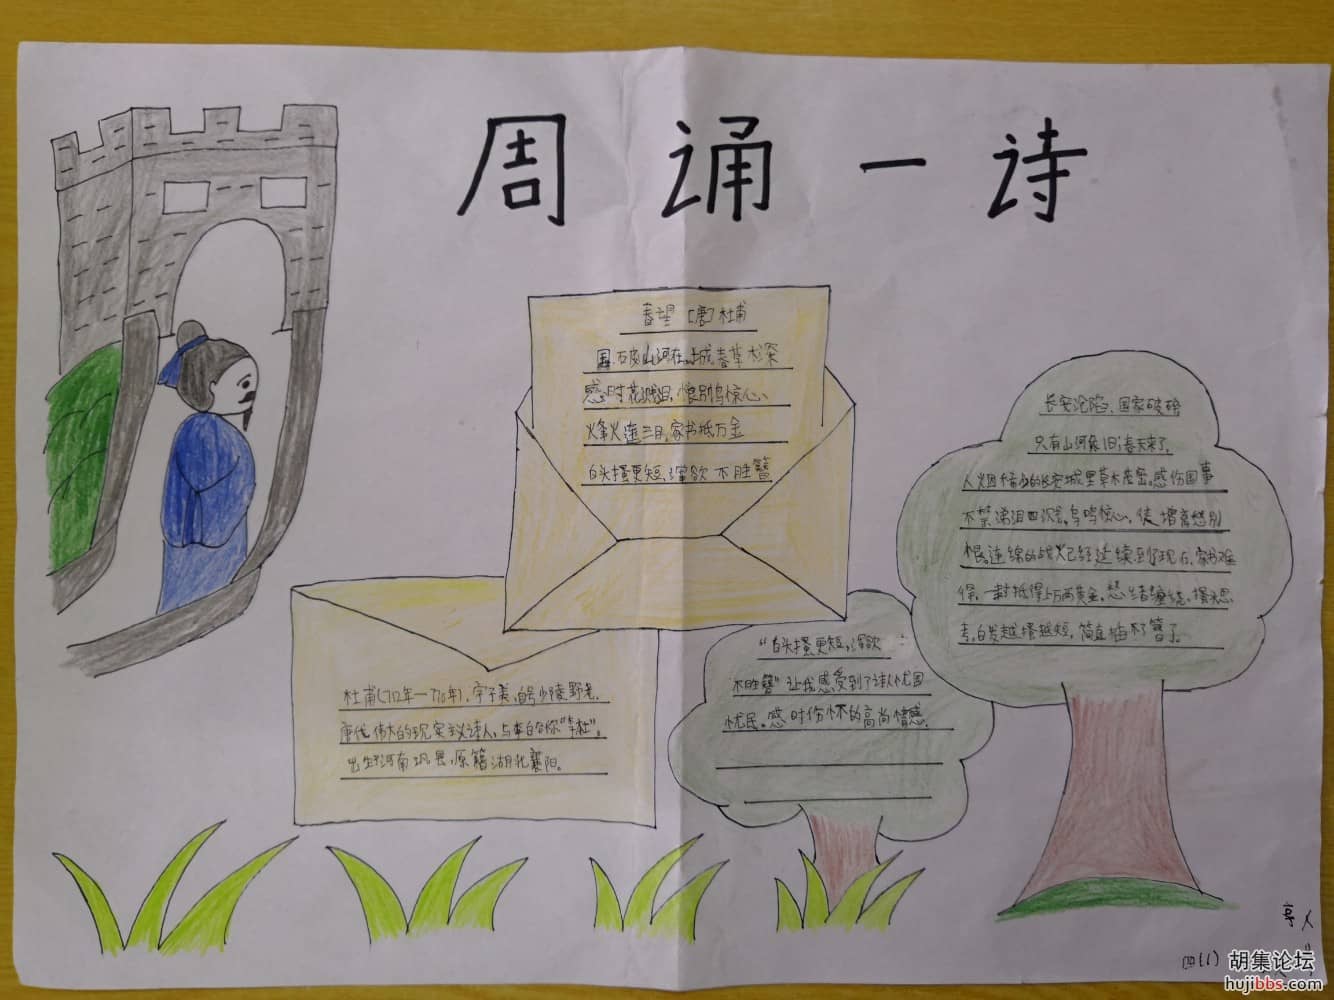 周诵一诗
春望 [唐]杜甫
国破山河在,城春草木深
感时花溅泪,恨别鸟惊心、
烽火连三月,家书抵万金
白头搔更短,浑欲不胜簪
长安沦陷、国家破碎
只有山河依旧;春天来了,
人烟稀少的长安城里草木茂密。感伤国事
不禁涕泪四溅,鸟鸣惊心,徒增离愁别
恨。连绵的战火已经延续到了现在,家书难
得,一封抵得上万两黄金。愁绪缠绕,搔头思
考,白发越搔越短,简直插不了簪了。
“白头搔更短,浑欲
不胜簪”让我感受到了诗人忧国
忧民。感时伤怀的高尚情感.
杜甫(712年一770年),字子美,自号少陵野老.
唐代伟大的现实主义诗人,与李白合称“李杜”。
出生于河南巩县,原籍湖北襄阳。
四(1)
胡集论坛
hujibbs.com